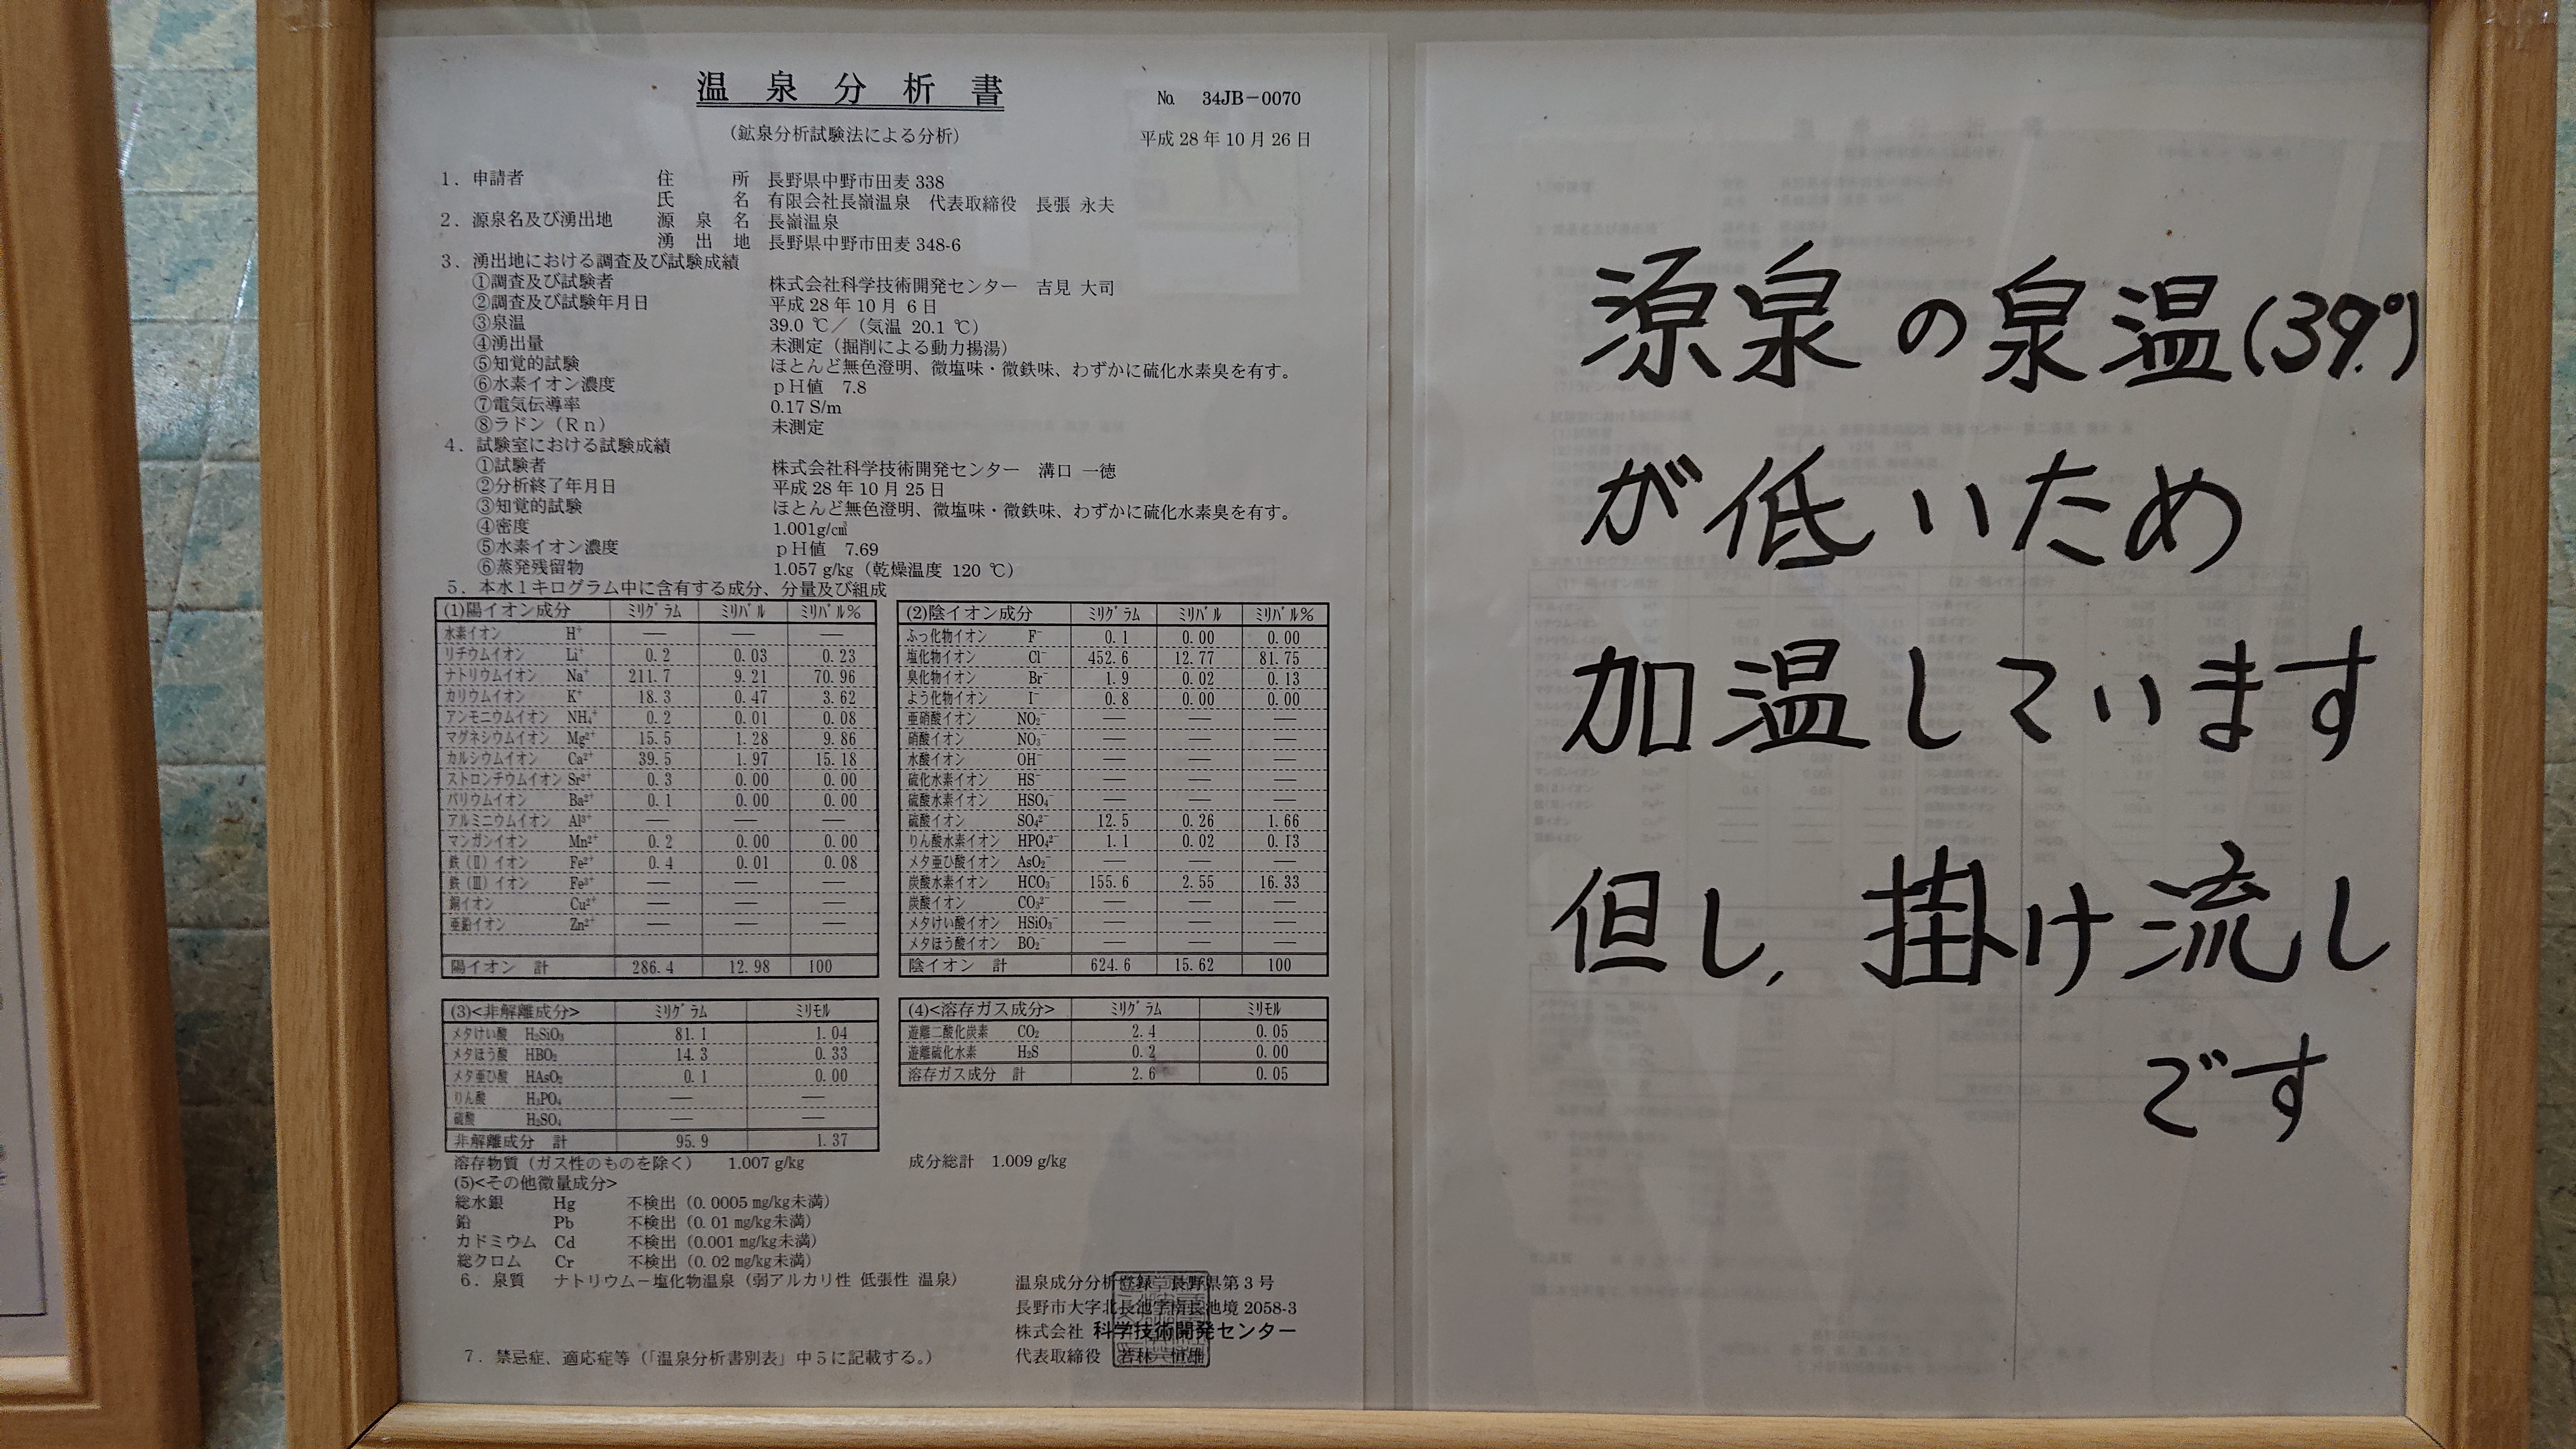 温泉分析書
No. 34JB－0070
（鉱泉分析試験法による分析）
平成 28 年 10 月 26 日
1．申請者 住所 長野県中野市田麦 338
氏名 有限会社長嶺温泉 代表取締役 長張 永夫
2．源泉名及び湧出地 源泉名 長嶺温泉
湧出地 長野県中野市田麦 348-6
3．湧出地における調査及び試験成績
①調査及び試験者 株式会社科学技術開発センター 吉見 大司
②調査及び試験年月日 平成 28 年 10 月 6 日
③泉温 39.0 ℃／（気温 20.1 ℃）
④湧出量 未測定（掘削による動力揚湯）
⑤知覚的試験 ほとんど無色澄明、微塩味・微鉄味、わずかに硫化水素臭を有す。
⑥水素イオン濃度 ｐＨ値 7.8
⑦電気伝導率 0.17 S/m
⑧ラドン（Ｒｎ） 未測定
4．試験室における試験成績
①試験者 株式会社科学技術開発センター 溝口 一徳
②分析終了年月日 平成 28 年 10 月 25 日
③知覚的試験 ほとんど無色澄明、微塩味・微鉄味、わずかに硫化水素臭を有す。
④密度 1.001g/c㎥
⑤水素イオン濃度 ｐＨ値 7.69
⑥蒸発残留物 1.057 g/kg（乾燥温度 120 ℃）
5．本水１キログラム中に含有する成分、分量及び組成
(1)陽イオン成分 ﾐﾘｸﾞﾗﾑ ﾐﾘﾊﾞﾙ ﾐﾘﾊﾞﾙ%
水素イオン H⁺ ― ― ―
リチウムイオン Li⁺ 0.2 0.03 0.23
ナトリウムイオン Na⁺ 211.7 9.21 70.96
カリウムイオン K⁺ 18.3 0.47 3.62
アンモニウムイオン NH₄⁺ 0.2 0.01 0.08
マグネシウムイオン Mg²⁺ 15.5 1.28 9.86
カルシウムイオン Ca²⁺ 39.5 1.97 15.18
ストロンチウムイオン Sr²⁺ 0.3 0.00 0.00
バリウムイオン Ba²⁺ 0.1 0.00 0.00
アルミニウムイオン Al³⁺ ― ― ―
マンガンイオン Mn²⁺ 0.2 0.00 0.00
鉄（Ⅱ）イオン Fe²⁺ 0.4 0.01 0.08
鉄（Ⅲ）イオン Fe³⁺ ― ― ―
銅イオン Cu²⁺ ― ― ―
亜鉛イオン Zn²⁺ ― ― ―
陽イオン 計 286.4 12.98 100
(2)陰イオン成分 ﾐﾘｸﾞﾗﾑ ﾐﾘﾊﾞﾙ ﾐﾘﾊﾞﾙ%
ふっ化物イオン F⁻ 0.1 0.00 0.00
塩化物イオン Cl⁻ 452.6 12.77 81.75
臭化物イオン Br⁻ 1.9 0.02 0.13
よう化物イオン I⁻ 0.8 0.00 0.00
亜硝酸イオン NO₂⁻ ― ― ―
硝酸イオン NO₃⁻ ― ― ―
水酸イオン OH⁻ ― ― ―
硫化水素イオン HS⁻ ― ― ―
硫酸水素イオン HSO₄⁻ ― ― ―
硫酸イオン SO₄²⁻ 12.5 0.26 1.66
りん酸水素イオン HPO₄²⁻ 1.1 0.02 0.13
メタ亜ひ酸イオン AsO₂⁻ ― ― ―
炭酸水素イオン HCO₃⁻ 155.6 2.55 16.33
炭酸イオン CO₃²⁻ ― ― ―
メタけい酸イオン HSiO₃⁻ ― ― ―
メタほう酸イオン BO₂⁻ ― ― ―
陰イオン 計 624.6 15.62 100
(3)<非解離成分> ﾐﾘｸﾞﾗﾑ ﾐﾘﾓﾙ
メタけい酸 H₂SiO₃ 81.1 1.04
メタほう酸 HBO₂ 14.3 0.33
メタ亜ひ酸 HAsO₂ 0.1 0.00
りん酸 H₃PO₄ ― ―
硫酸 H₂SO₄ ― ―
非解離成分 計 95.9 1.37
(4)<溶存ガス成分> ﾐﾘｸﾞﾗﾑ ﾐﾘﾓﾙ
遊離二酸化炭素 CO₂ 2.4 0.05
遊離硫化水素 H₂S 0.2 0.00
溶存ガス成分 計 2.6 0.05
溶存物質（ガス性のものを除く） 1.007 g/kg 成分総計 1.009 g/kg
(5)<その他微量成分>
総水銀 Hg 不検出（0.0005 ㎎/kg未満）
鉛 Pb 不検出（0.01 ㎎/kg未満）
カドミウム Cd 不検出（0.001 ㎎/kg未満）
総クロム Cr 不検出（0.02 ㎎/kg未満）
6．泉質 ナトリウム－塩化物温泉（弱アルカリ性 低張性 温泉）
温泉成分分析登録 長野県第 3 号
長野市大字北長池字南長池境 2058-3
株式会社 科学技術開発センター
代表取締役 若林 恒雄
7．禁忌症、適応症等（「温泉分析書別表」中５に記載する。）
源泉の泉温(39°)
が低いため
加温しています
但し、掛け流し
です